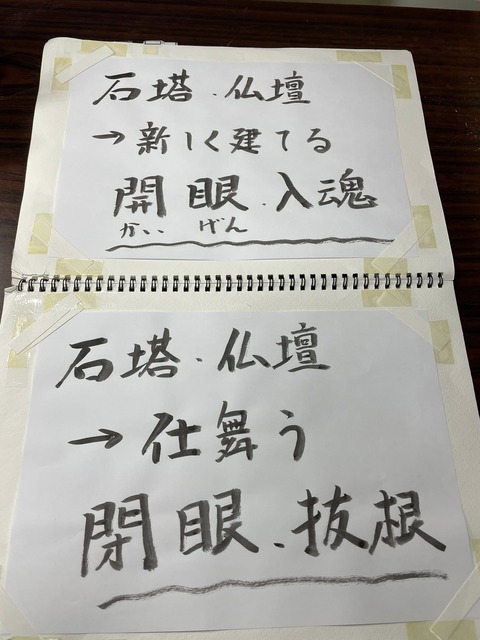 石塔．仏壇
→新しく建てる
開眼．入魂
かいげん
石塔．仏壇
→仕舞う
閉眼．抜根